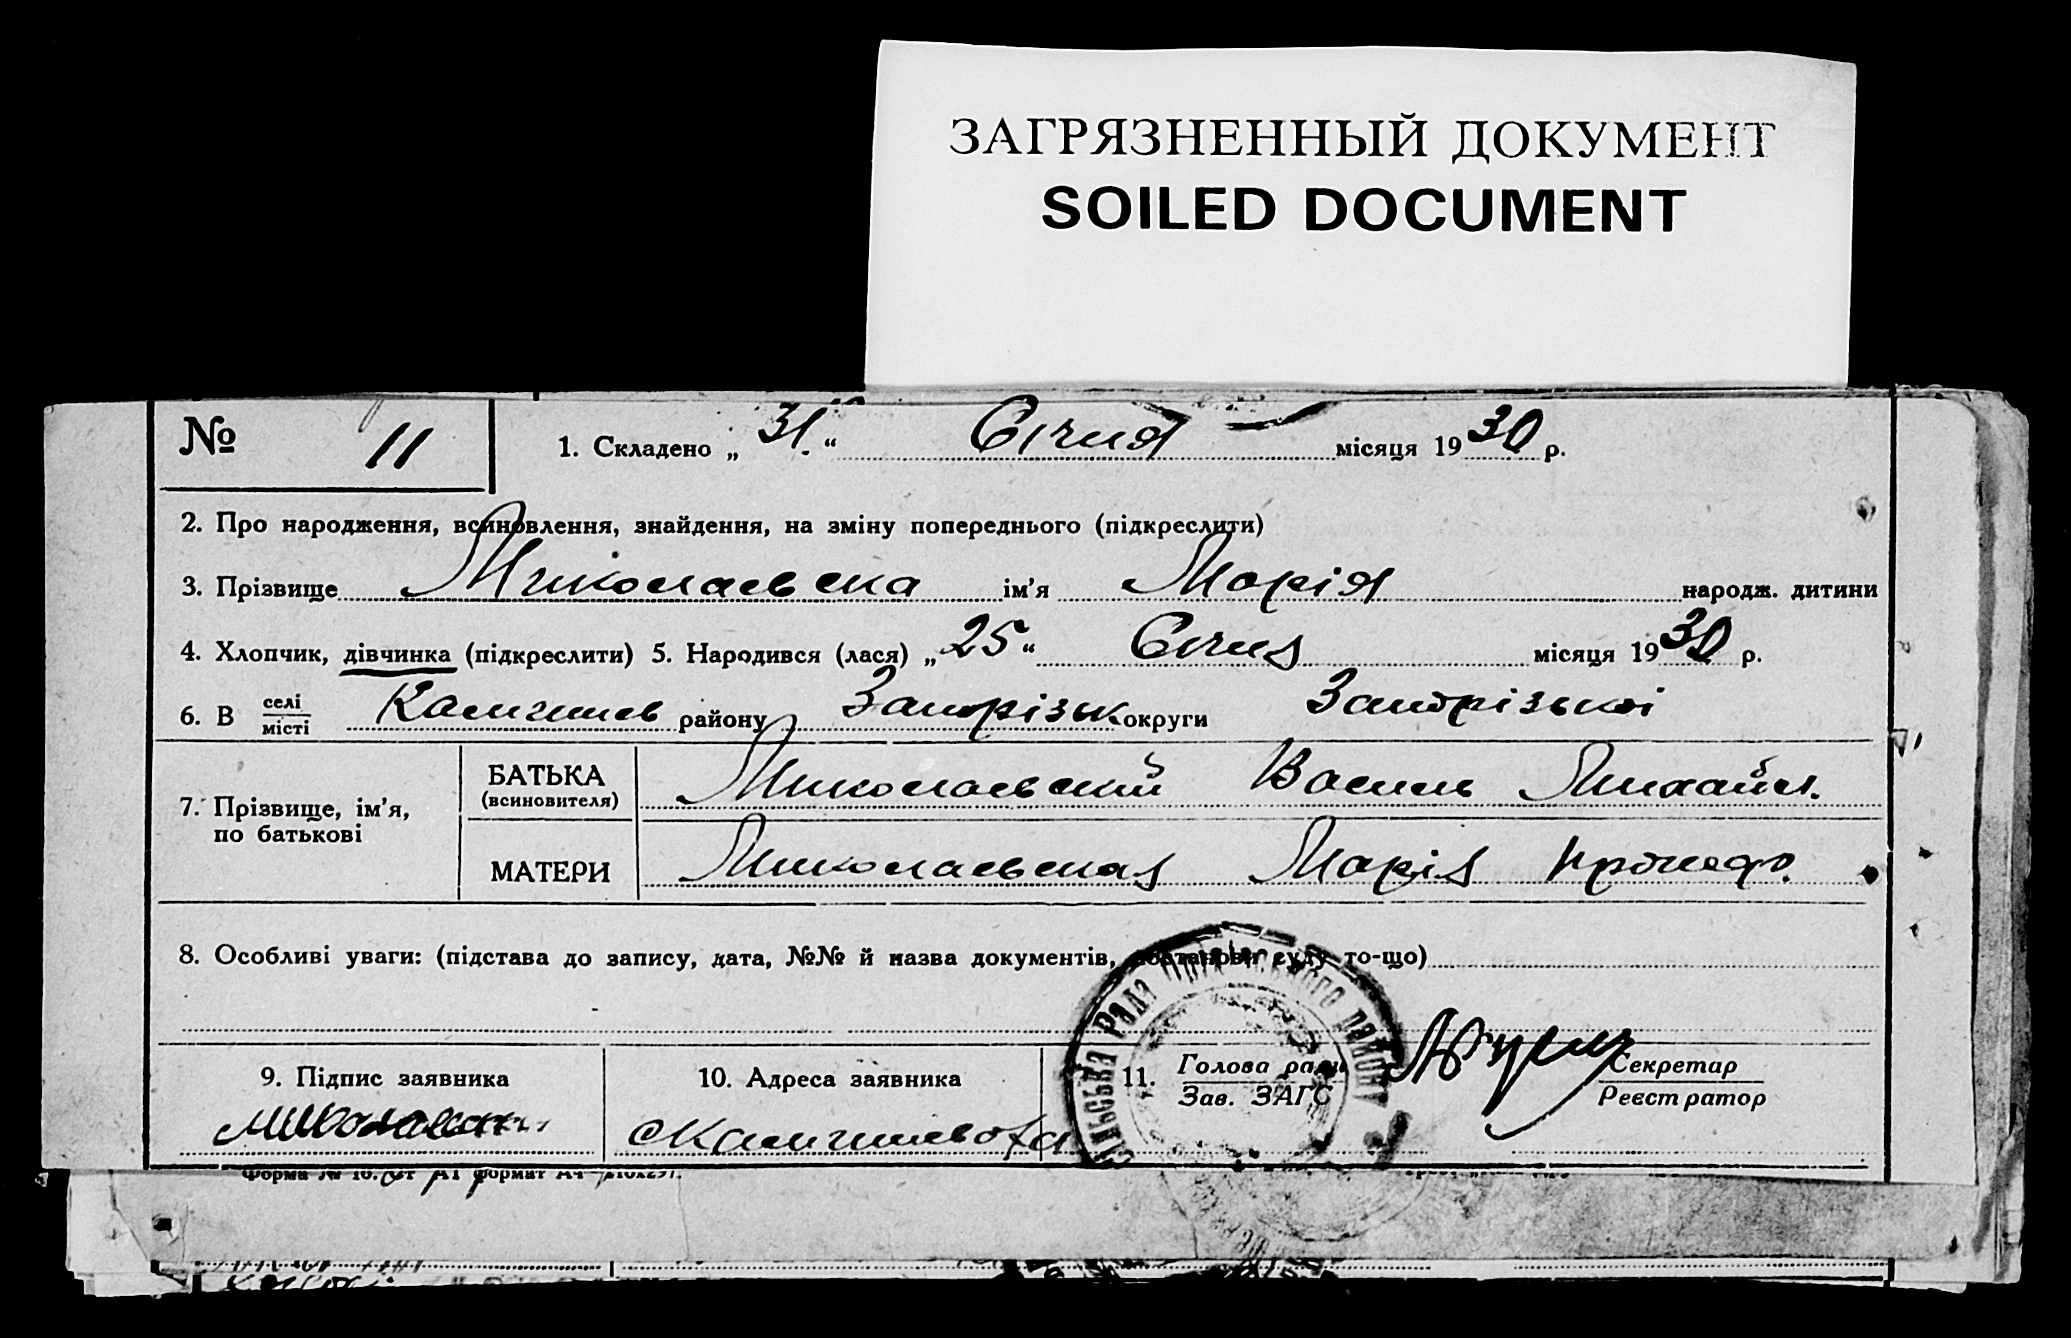 ЗАГРЯЗНЕННЫЙ ДОКУМЕНТ
SOILED DOCUMENT
№ 11
1. Складено „ 31. “ Січня місяця 1930 р.
2. Про народження, всиновлення, знайдення, на зміну попереднього (підкреслити)
3. Прізвище Миколаевска ім'я Марія народж. дитини
4. Хлопчик, дівчинка (підкреслити) 5. Народився (лася) „ 25 “ Січня місяця 1930 р.
6. В селі місті району Запорізьк округи Запорізької
7. Прізвище, ім'я, по батькові
БАТЬКА (всиновителя) Миколаевский Василь Михайл.
МАТЕРИ Миколаевская Марія
8. Особливі уваги: (підстава до запису, дата, №№ й назва документів, постанови суду то-що)
9. Підпис заявника
10. Адреса заявника
11. Голова ради Зав. ЗАГС
Секретар Реєстратор
Сільська Рада району
Форма № 10. формат А4—210х297.